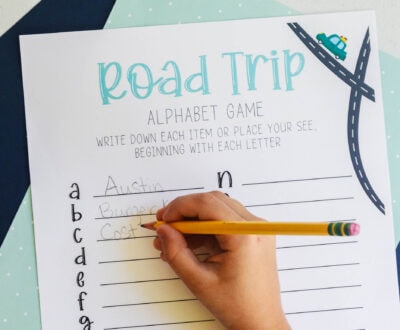 Road Trip
ALPHABET GAME
WRITE DOWN EACH ITEM OR PLACE YOUR SEE,
BEGINNING WITH EACH LETTER
a Austin n
b
c
d
e
f
g